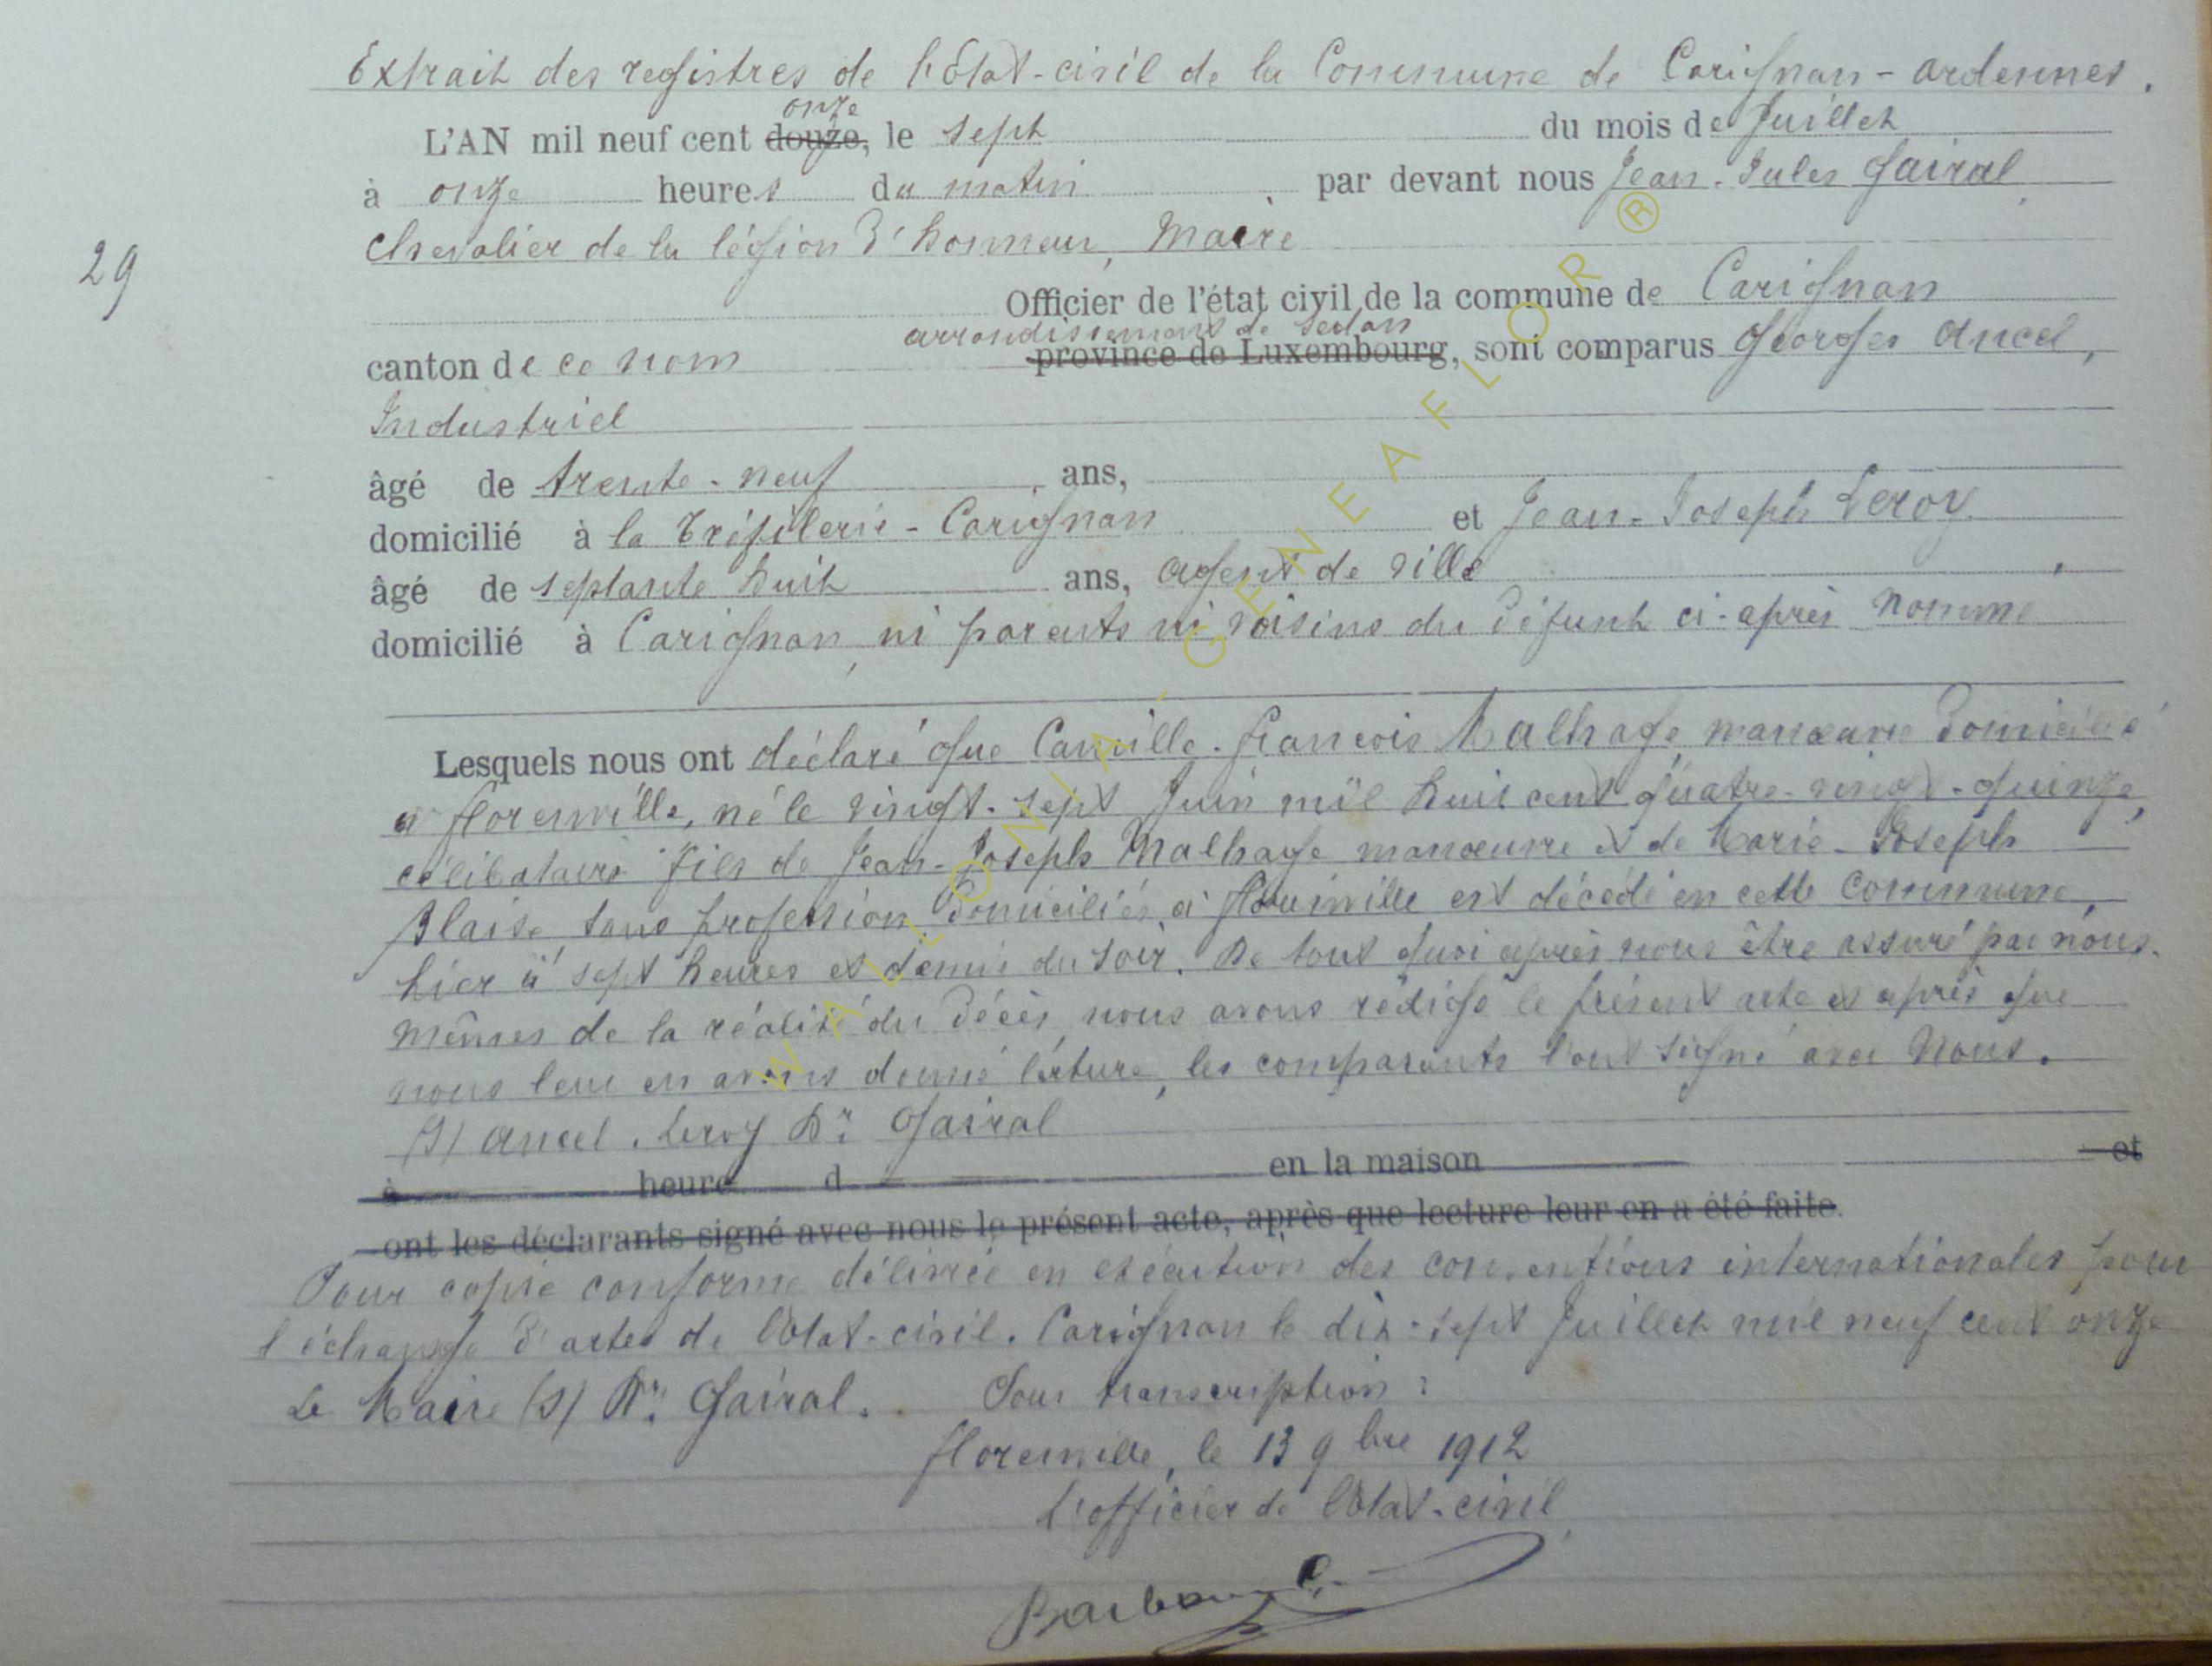 Extrait des registres de l'Etat-civil de la Commune de Carignan - Ardennes.
onze
L'AN mil neuf cent douze, le sept du mois de Juillet
à onze heures du matin par devant nous Jean-Jules Gairal
Chevalier de la légion d'honneur, Maire
29
Officier de l'état civil de la commune de Carignan
arrondissement de Sedan
canton de ce nom province de Luxembourg, sont comparus Georges Ancel,
Industriel
âgé de trente-neuf ans,
domicilié à la Tréfilerie - Carignan et Jean-Joseph Leroy
âgé de septante huit ans, agent de ville
domicilié à Carignan, ni parents ni voisins du défunt ci-après nommé
Lesquels nous ont déclaré que Camille-François Malhage, manœuvre domicilié
à Florenville, né le vingt-sept Juin mil huit cent quatre-vingt-quinze,
célibataire fils de Jean-Joseph Malhage manœuvre et de Marie-Joseph
Blaise sans profession domiciliés à Florenville est décédé en cette commune,
hier à sept heures et demie du soir. De tout quoi après nous être assuré par nous-
mêmes de la réalité du décès, nous avons rédigé le présent acte et après que
nous leur en avons donné lecture, les comparants l'ont signé avec Nous.
(S) Ancel. Leroy Dr Gairal
à heure d en la maison et
ont les déclarants signé avec nous le présent acte, après que lecture leur en a été faite.
Pour copie conforme délivrée en exécution des conventions internationales pour
l'échange d'actes de l'Etat-civil. Carignan le dix-sept Juillet mil neuf cent onze
Le Maire (S) Dr Gairal. Pour transcription:
Florenville, le 13 9bre 1912
L'officier de l'Etat-civil,
WALLONIA - GENEAFLOR ®